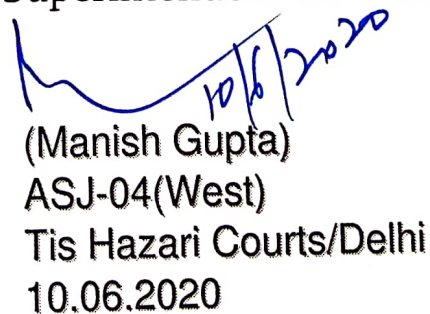 10/6/2020
(Manish Gupta)
ASJ-04(West)
Tis Hazari Courts/Delhi
10.06.2020